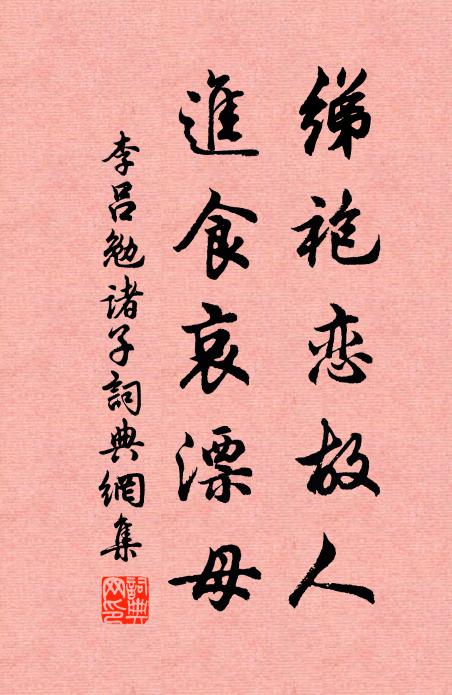 绨袍恋故人
進食哀漂母
李吕勉诸子詞典網集
詞典网印